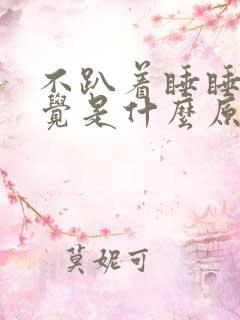 不趴着睡睡
覺是什麼原
莫妮可